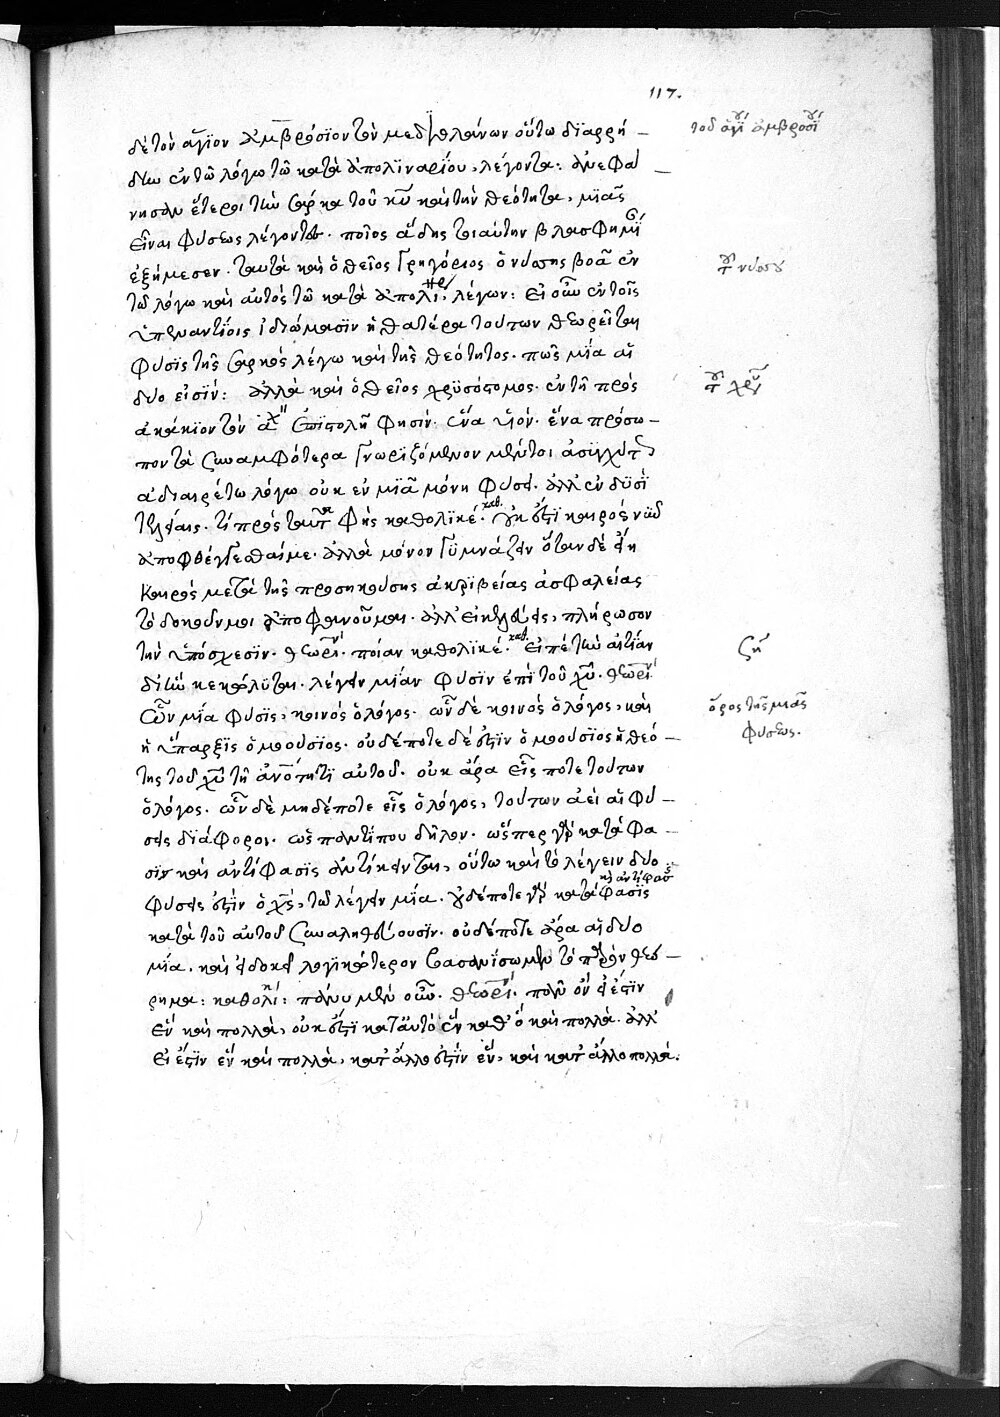 117.
δὲ τὸν ἅγιον ἀμβρόσϊον τὸν μεδιολάνων οὕτω δϊαρρή –
δην ἐν τῶ λόγω τῶ κατὰ ἀπολϊναρίου, λέγοντα: ἀνεφά –
νησαν ἕτεροι τὴν σάρκα τοῦ κῦ καὶ τὴν θεότητα, μϊᾶς
εἶναι φύσεως λέγοντες. ποῖος ἅδης τοιαύτην βλασφημί
ἐξήμεσεν. ταῦτα καὶ ὁ θεῖος γρηγόριος ὁ νύσσης βοᾶ ἐν
τῶ λόγω καὶ αὐτὸς τῶ κατὰ ἀπολι, λέγων: Εἰ οὖν ἐν τοῖς
ὑπεναντίοις ἰδιώμασϊν ἡ θατέρα τούτων θεωρεῖται
φύσϊς τῆς σαρκὸς λέγω καὶ τῆς θεότητος. πῶς μία αἱ
δύο εἰσίν: ἀλλὰ καὶ ὁ θεῖος χρϋσόστομος. ἐν τῆ πρὸς
ἀκάκϊον τὸν ἐπϊστολῆ φησίν. ἕνα υἱόν. ἕνα πρόσω –
πον τὰ συναμφότερα γνωρϊζόμενον μέντοι ἀσϋγχύτ
ἀδιαιρέτω λόγω οὐκ ἐν μϊᾶ μόνη φύσει. ἀλλ' ἐν δϋσὶ
τελείαις. τί πρὸς ταῦτα φὴς καθολϊκέ. καθ. οὐκ ἔστϊ καιρὸς νῦν
ἀποφθέγξεσθαί με. ἀλλὰ μόνον γϋμνάζειν ὅταν δὲ ἥκη
καιρὸς μετὰ τῆς προσηκούσης ἀκρϊβείας ἀσφαλείας
τὸ δοκοῦν μοι ἀποφαινοῦμαι. ἀλλ' εἰ κελεύεις, πλήρωσον
τὴν ὑπόσχεσϊν. θεωρι. ποίαν καθολϊκέ. καθ. Εἰπὲ τὴν αἰτίαν
δι' ἣν κεκώλϋται. λέγειν μίαν φύσϊν ἐπὶ τοῦ χῦ. θεωρι
ὧν μία φύσϊς, κοινὸς ὁ λόγος. ὧν δὲ κοινὸς ὁ λόγος, καὶ
ἡ ὕπαρξϊς ὁμοούσϊος. οὐδέποτε δέ ἐστϊν ὁμοούσϊος ἡ θεό –
της τοῦ χῦ τῆ ἀνότητϊ αὐτοῦ. οὐκ ἄρα εἷς ποτε τούτων
ὁ λόγος. ὧν δὲ μηδέποτε εἷς ὁ λόγος, τούτων ἀεὶ αἱ φύ –
σεις διάφοροι. ὡς παντί που δῆλον. ὥσπερ γὰρ κατάφα –
σϊν καὶ ἀντίφασϊς ἀντίκειται, οὕτω καὶ τὸ λέγειν δύο
φύσεις ἐστϊν ὁ χς, τῶ λέγειν μία. οὐδέποτε γὰρ κατάφασϊς καὶ ἀντίφασ
κατὰ τοῦ αὐτοῦ συναληθεύουσϊν. οὐδέποτε ἄρα αἱ δύο
μία. καὶ εἰ δοκεῖ λογϊκώτερον βασανίσωμεν τὸ παρὸν θεώ –
ρημα: καθολι: πάνυ μὲν οὖν. θεωρι. πᾶν ὂν εἰ ἔστϊν
ἓν καὶ πολλά, οὐκ ἔστϊ κατ' αὐτὸ ἓν καθ' ὃ καὶ πολλά. ἀλλ'
εἰ ἔστϊν ἓν καὶ πολλά, κατ' ἄλλο ἐστὶν ἕν, καὶ κατ' ἄλλο πολλά.
τοῦ ἁγί ἀμβροσΐ
τοῦ νύσης
τοῦ χρυ
ζη
ὅρος τῆς μιᾶς
φύσεως.